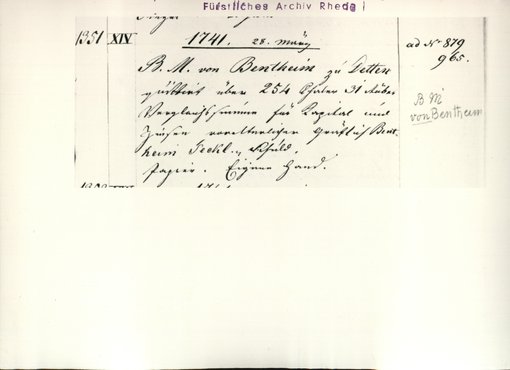 Fürstliches Archiv Rheda
1351 XIV 1741. 28. März ad No 879
965.
B. M. von Bentheim zu Detten
quittirt über 254 Thaler 31 Stüber
Vergleichssumme für Kapital und
Zinsen voreltterlicher Gräflich Bent-
heim Teckl. Schuld.
Papier. Eigene Hand.
B M
von Bentheim